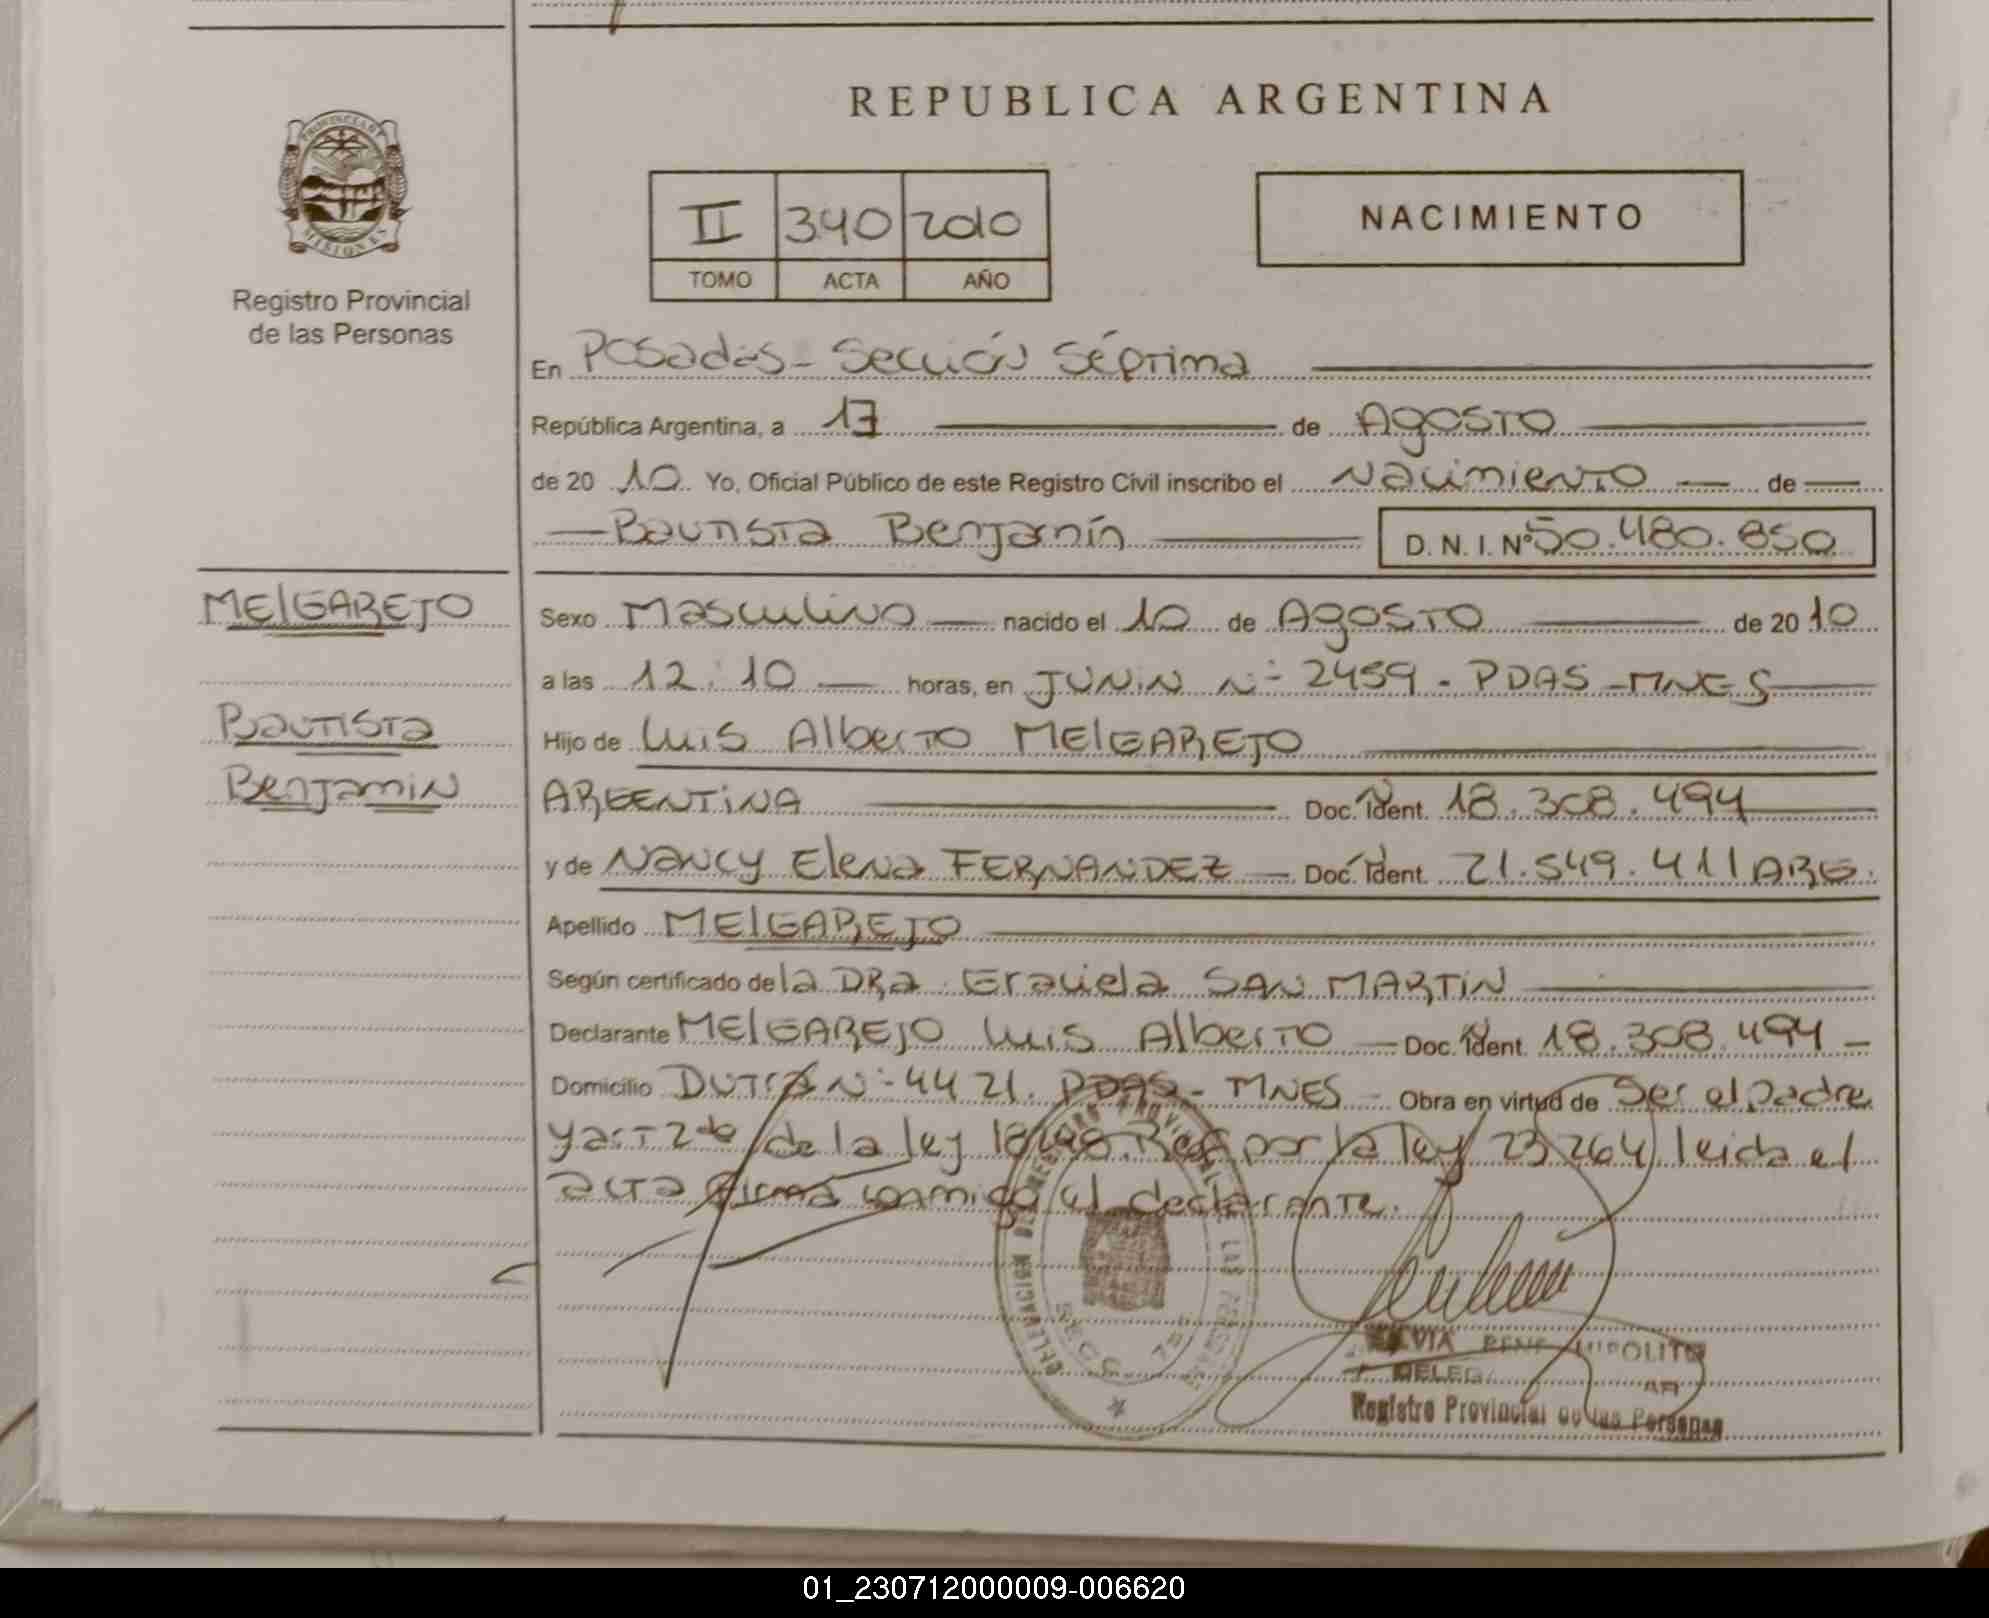 REPUBLICA ARGENTINA
PROVINCIA DE MISIONES
Registro Provincial
de las Personas
II 340 2010
TOMO ACTA AÑO
NACIMIENTO
En Posadas - Sección Séptima
República Argentina, a 17 de Agosto
de 20 10 Yo, Oficial Público de este Registro Civil inscribo el Nacimiento de
Bautista Benjamín D. N. I. Nº 50.480.850
MElGAREJO
Bautista
Benjamin
Sexo Masculino nacido el 10 de Agosto de 20 10
a las 12:10 horas, en JUNIN Nº 2459 - PDAS - MNES
Hijo de Luis Alberto MElGAREJO
ARGENTINA Doc. Ident. 18.308.494
y de Nancy Elena FERNANDEZ Doc. Ident. 21.549.411 ARG.
Apellido MElGAREJO
Según certificado de la DRA. Graciela SAN MARTIN
Declarante MElGAREJO Luis Alberto Doc. Ident. 18.308.494
Domicilio DUTRA Nº 4421. PDAS - MNES Obra en virtud de Ser el padre
y art 2 de la ley por la ley 23264 leida el
acta firma conmigo el declarante.
DELEGACION DEL REGISTRO PROVINCIAL DE LAS PERSONAS
SECC. 7
Registro Provincial de las Personas
01_230712000009-006620